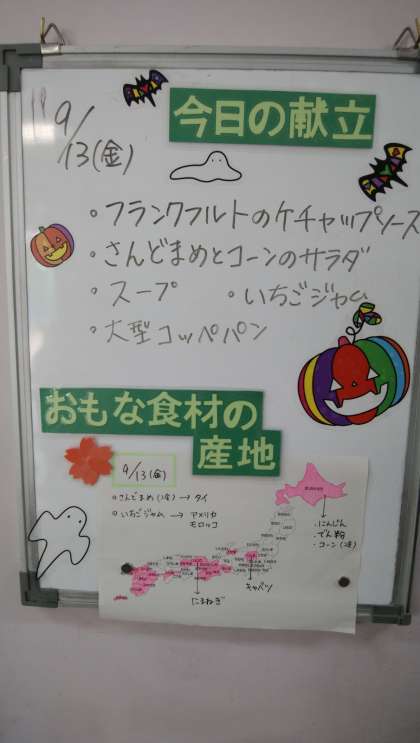 9/13(金)
今日の献立
・フランクフルトのケチャップソース
・さんどまめとコーンのサラダ
・スープ ・いちごジャム
・大型コッペパン
おもな食材の
産地
9/13(金)
・さんどまめ(冷) → タイ
・いちごジャム → アメリカ
モロッコ
・にんじん
・でん粉
・コーン(冷)
キャベツ
たまねぎ